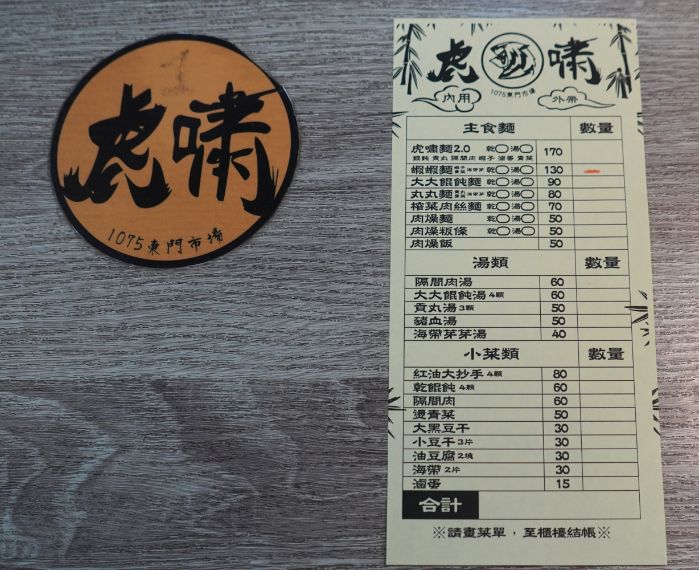 虎嘯
1075東門市場
虎嘯
1075東門市場
內用 外帶
主食麵 數量
虎嘯麵2.0 乾○湯○ 170
餛飩 貢丸 隔間肉 蝦子 滷蛋 青菜
蝦蝦麵 乾○湯○ 130
大大餛飩麵 乾○湯○ 90
丸丸麵 乾○湯○ 80
榨菜肉絲麵 乾○湯○ 70
肉燥麵 乾○湯○ 50
肉燥粄條 乾○湯○ 50
肉燥飯 50
湯類 數量
隔間肉湯 60
大大餛飩湯 4顆 60
貢丸湯 3顆 50
豬血湯 50
海帶芽芽湯 40
小菜類 數量
紅油大抄手 4顆 80
乾餛飩 4顆 60
隔間肉 60
燙青菜 50
大黑豆干 30
小豆干 3片 30
油豆腐 2塊 30
海帶 2片 30
滷蛋 15
合計
※請畫菜單,至櫃檯結帳※